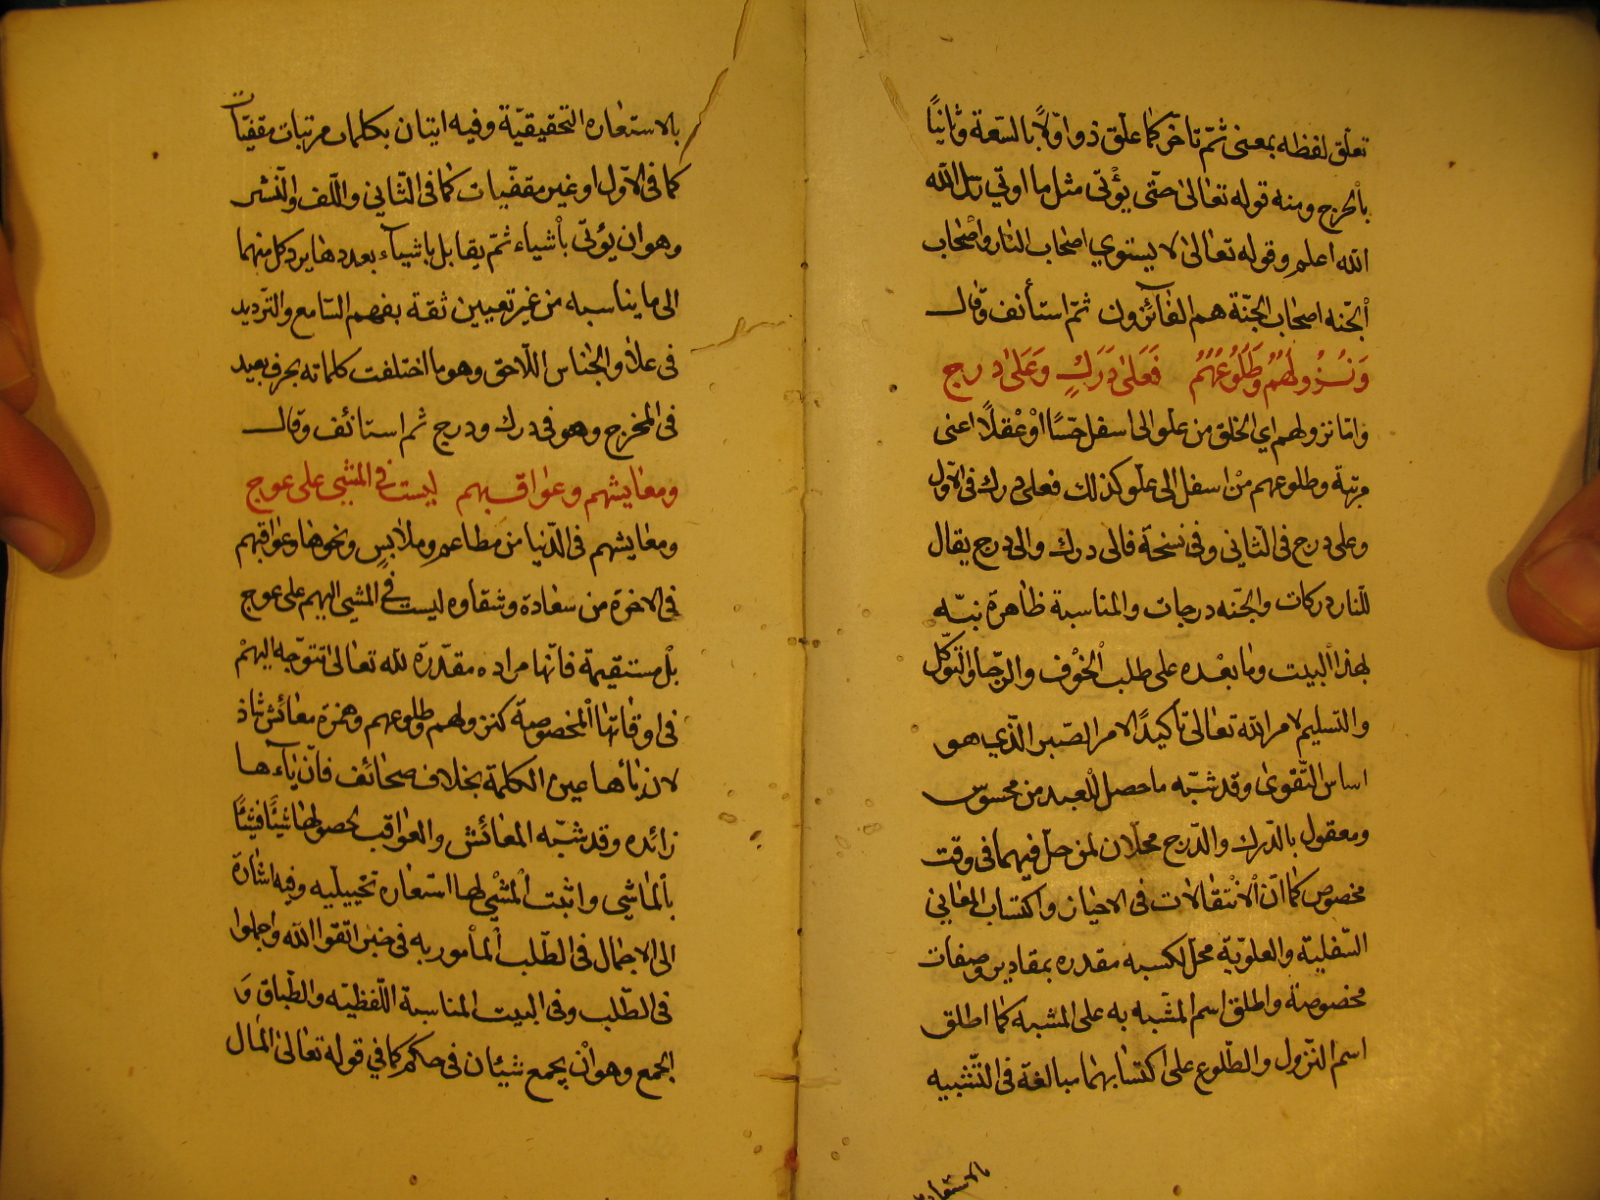 تعلّق لفظه بمعنى ثمّ تأخر كما علّق ذو اوّلاً بالسّعة وثانياً
بالحرج ومنه قوله تعالى حتّى يؤتى مثل ما اوتي رسل اللّه
اللّه اعلم وقوله تعالى لا يستوي اصحاب النّار واصحاب
الجنّه اصحاب الجنّة هم الفآئزون ثمّ استأنف وقال
وَنُزُولُهُمْ وَطُلُوعُهُمْ فَعَلىٰ دَرَكٍ وَعَلىٰ درج
وامّا نزولهم اي الخلق من علو الى اسفل حسّاً اوْ عقْلاً اعنى
مرتبة وطلوعهم منْ اسفل الى علو كذلك فعلى درك فى الاوّل
وعلى درج فى الثّاني وفى نسخة فالى درك والى درج يقال
للنّار دركات والجنّه درجات والمناسبة ظاهرة نبّه
بهذا البيت وما بعْده على طلب الخوْف والرّجا والتّوكّل
والتسليم لامر اللّه تعالى تأكيداً لامر الصّبر الّذي هو
اساس التّقوى وقد شبّه ما حصل للعبد من محسوس
ومعقول بالدّرك والدّرج محلّان لمن حلّ فيهما فى وقت
مخصوص كما انّ الانْتقالات فى الاحيان واكتساب المعاني
السّفليّة والعلويّة محلّ لكسبه مقدره بمقادير وصفات
مخصوصة واطلق اسم المشبّه به على المشبه كما اطلق
اسم النّزول والطّلوع على اكتسابهما مبالغة فى التّشبيه
بالاستعاره
بالاستعاره التحقيقيّة وفيه اتيان بكلمات مرتبات مقفيّات
كما فى الاوّل او غير مقفّيات كما فى الثّاني واللّف والنّشر
وهو ان يؤتى بأشياء ثمّ يقابل باشيآء بعددها يرد كل منهما
الى ما يناسبه من غير تعيين ثقة بفهم السّامع والتّرديد
فى علا والجناس اللّاحق وهو ما اختلفت كلماته بحرف بعيد
فى المخرج وهو فى درك ودرج ثم استأنف وقال
ومعايشهم وعواقبهم ليست فى المشى على عوج
ومعايشهم فى الدّنيا من مطاعم وملابس ونحوها وعواقبهم
فى الاخرة من سعادة وشقاوه ليست فى المشي اليهم على عوج
بلْ مستقيمة فانّها مراده مقدّرة للّه تعالى تتوجّه اليهمْ
فى اوقاتها المخصوصة كنزولهم وطلوعهم وهمزة معائش شاذ
لان يائها عين الكلمة بخلاف صحائف فانّ ياءها
زائده وقد شبّه المعائش والعواقب لحصولها شيئًا فشيئًا
بالماشي واثبت المشْي لها استعاره تخييليه وفيه اشارة
الى الاجمال فى الطّلب المأمور به فى خبر اتقوا اللّه واجملوا
فى الطّلب وفى البيت المناسبة اللّفظيّه والطّباق وَ
الجمع وهو انْ يجمع شيئان فى حكم كما في قوله تعالى المال